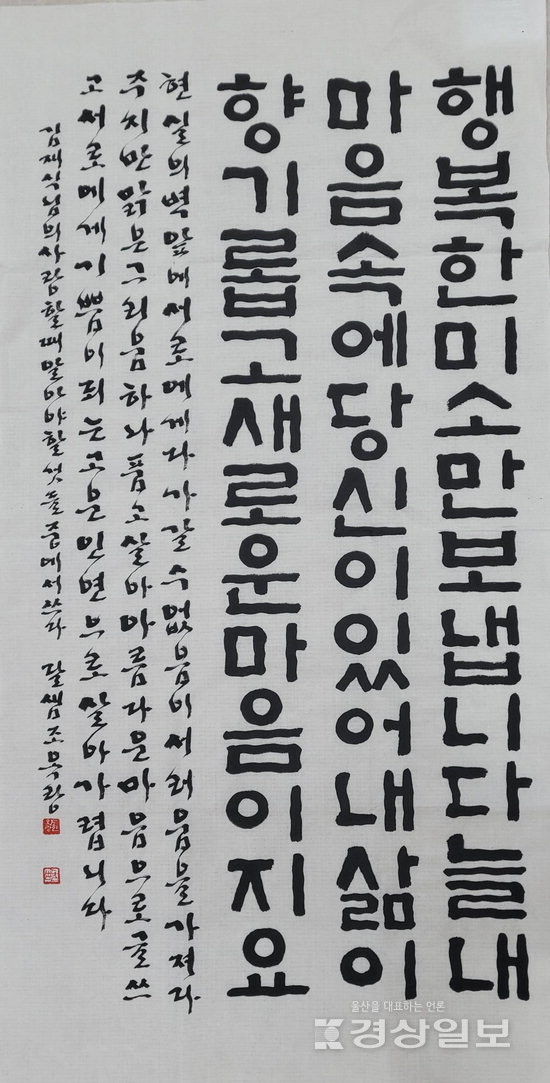 행복한미소만보냅니다늘내
마음속에당신이있어내삶이
향기롭고새로운마음이지요
현실의벽앞에서로에게다가갈수없음이서러움을가져다
주지만맑은그리움하나품고살아아름다운마음으로글쓰
고서로에게기쁨이되는고운인연으로살아가렵니다
김재식님의사랑할때알아야할것들중에서쓰다 달쌤조목랑
울산을 대표하는 언론
경상일보